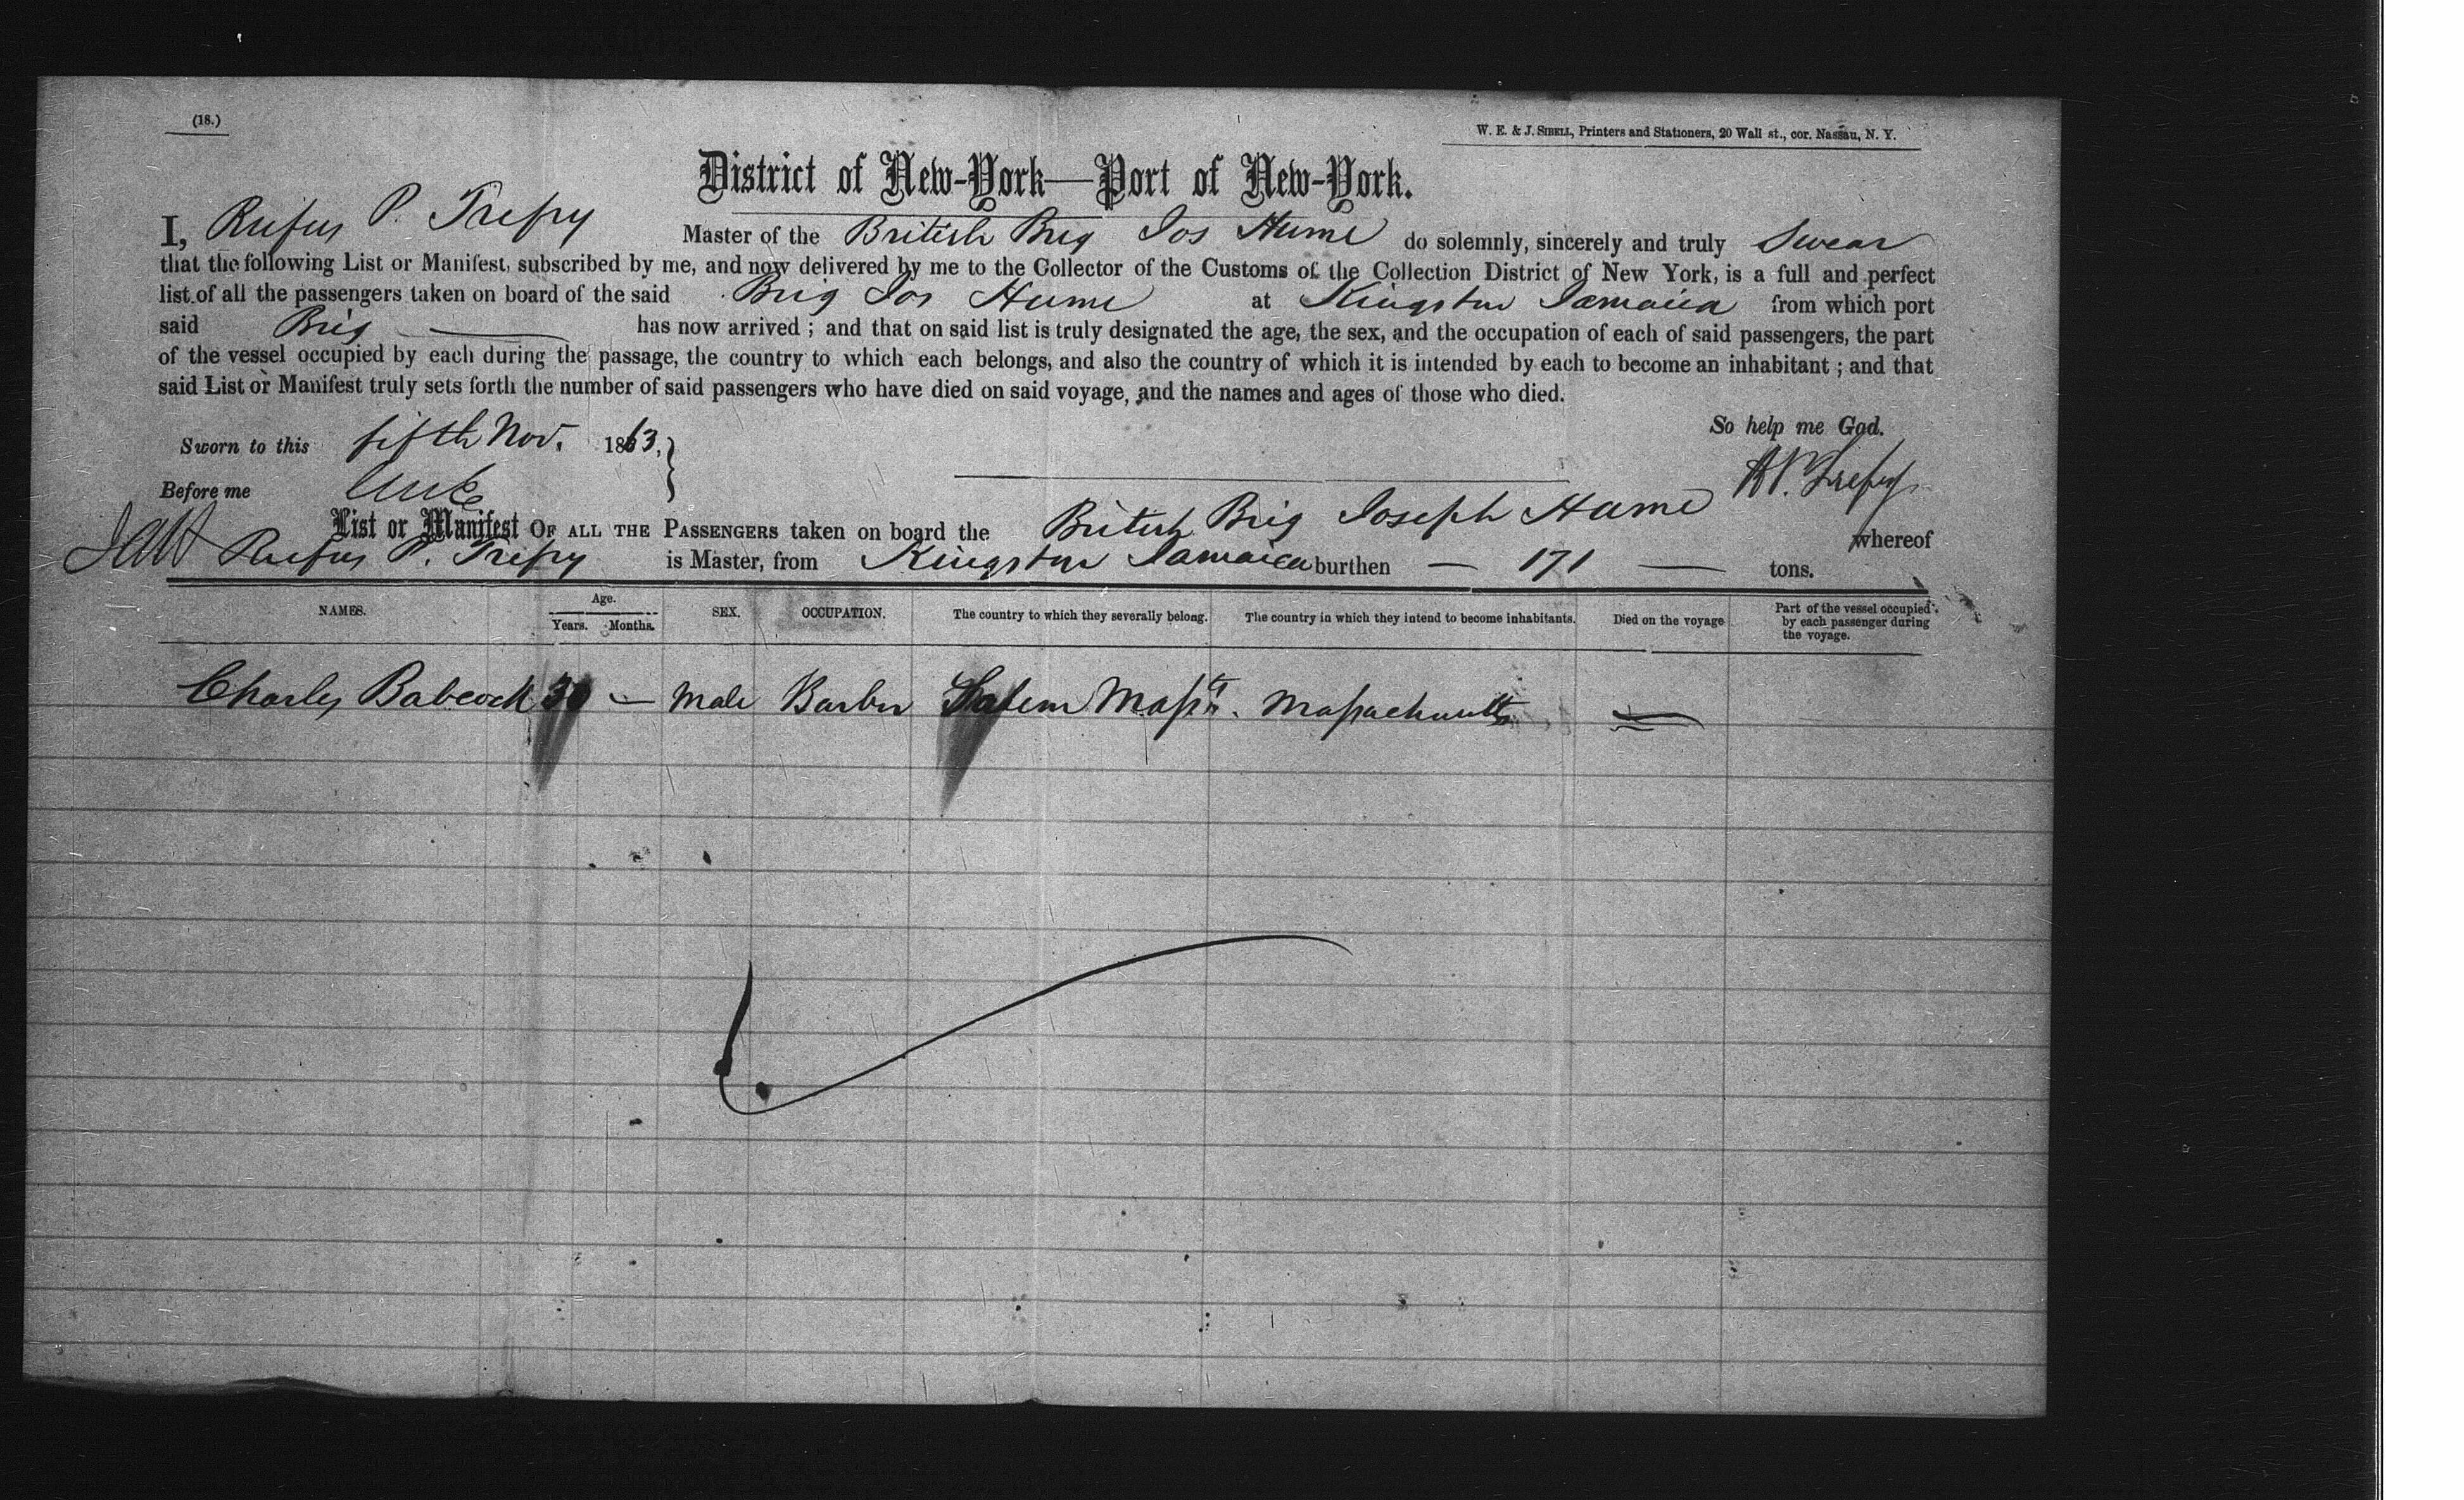 (18.)
W. E. & J. Sibell, Printers and Stationers, 20 Wall st., cor. Nassau, N. Y.
District of New-York—Port of New-York.
I, Rufus P. Trefry Master of the British Brig Jos Hume do solemnly, sincerely and truly Swear
that the following List or Manifest, subscribed by me, and now delivered by me to the Collector of the Customs of the Collection District of New York, is a full and perfect
list of all the passengers taken on board of the said Brig Jos Hume at Kingston Jamaica from which port
said Brig — has now arrived ; and that on said list is truly designated the age, the sex, and the occupation of each of said passengers, the part
of the vessel occupied by each during the passage, the country to which each belongs, and also the country of which it is intended by each to become an inhabitant ; and that
said List or Manifest truly sets forth the number of said passengers who have died on said voyage, and the names and ages of those who died.
So help me God.
Sworn to this fifth Nov. 1863,
R P. Trefry
Before me
List or Manifest OF ALL THE PASSENGERS taken on board the British Brig Joseph Hume whereof
Rufus P. Trefry is Master, from Kingston Jamaica burthen — 171 — tons.
NAMES. Age. Years. Months. SEX. OCCUPATION. The country to which they severally belong. The country in which they intend to become inhabitants. Died on the voyage Part of the vessel occupied by each passenger during the voyage.
Charles Babcock 30 — Male Barber Salem Masstts. Massachusetts —